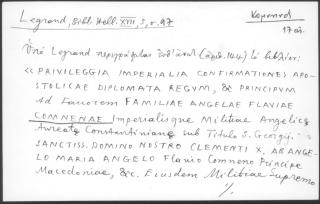 Legrand, Bibl. Hell. XVII, 5, σ. 97
Κομνηνοί
17 αι.
Ὑπὸ Legrand περιγράφεται ἐνθ' ἀνωτ. (ἀριθ. 144) τὸ βιβλίον:
«PRIVILEGGIA IMPERIALIA CONFIRMATIONES APOS-
TOLICAE DIPLOMATA REGVM, & PRINCIPVM
Ad Favorem FAMILIAE ANGELAE FLAVIAE
COMNENAE Imperialisque Militiae Angelicae
Aureatae Constantinianae sub Titulo S. Georgij.
SANCTISS. DOMINO NOSTRO CLEMENTI X, AB ANGE-
LO MARIA ANGELO Flavio Comneno Principe
Macedoniae, &c. Eiusdem Militiae Supremo
%.